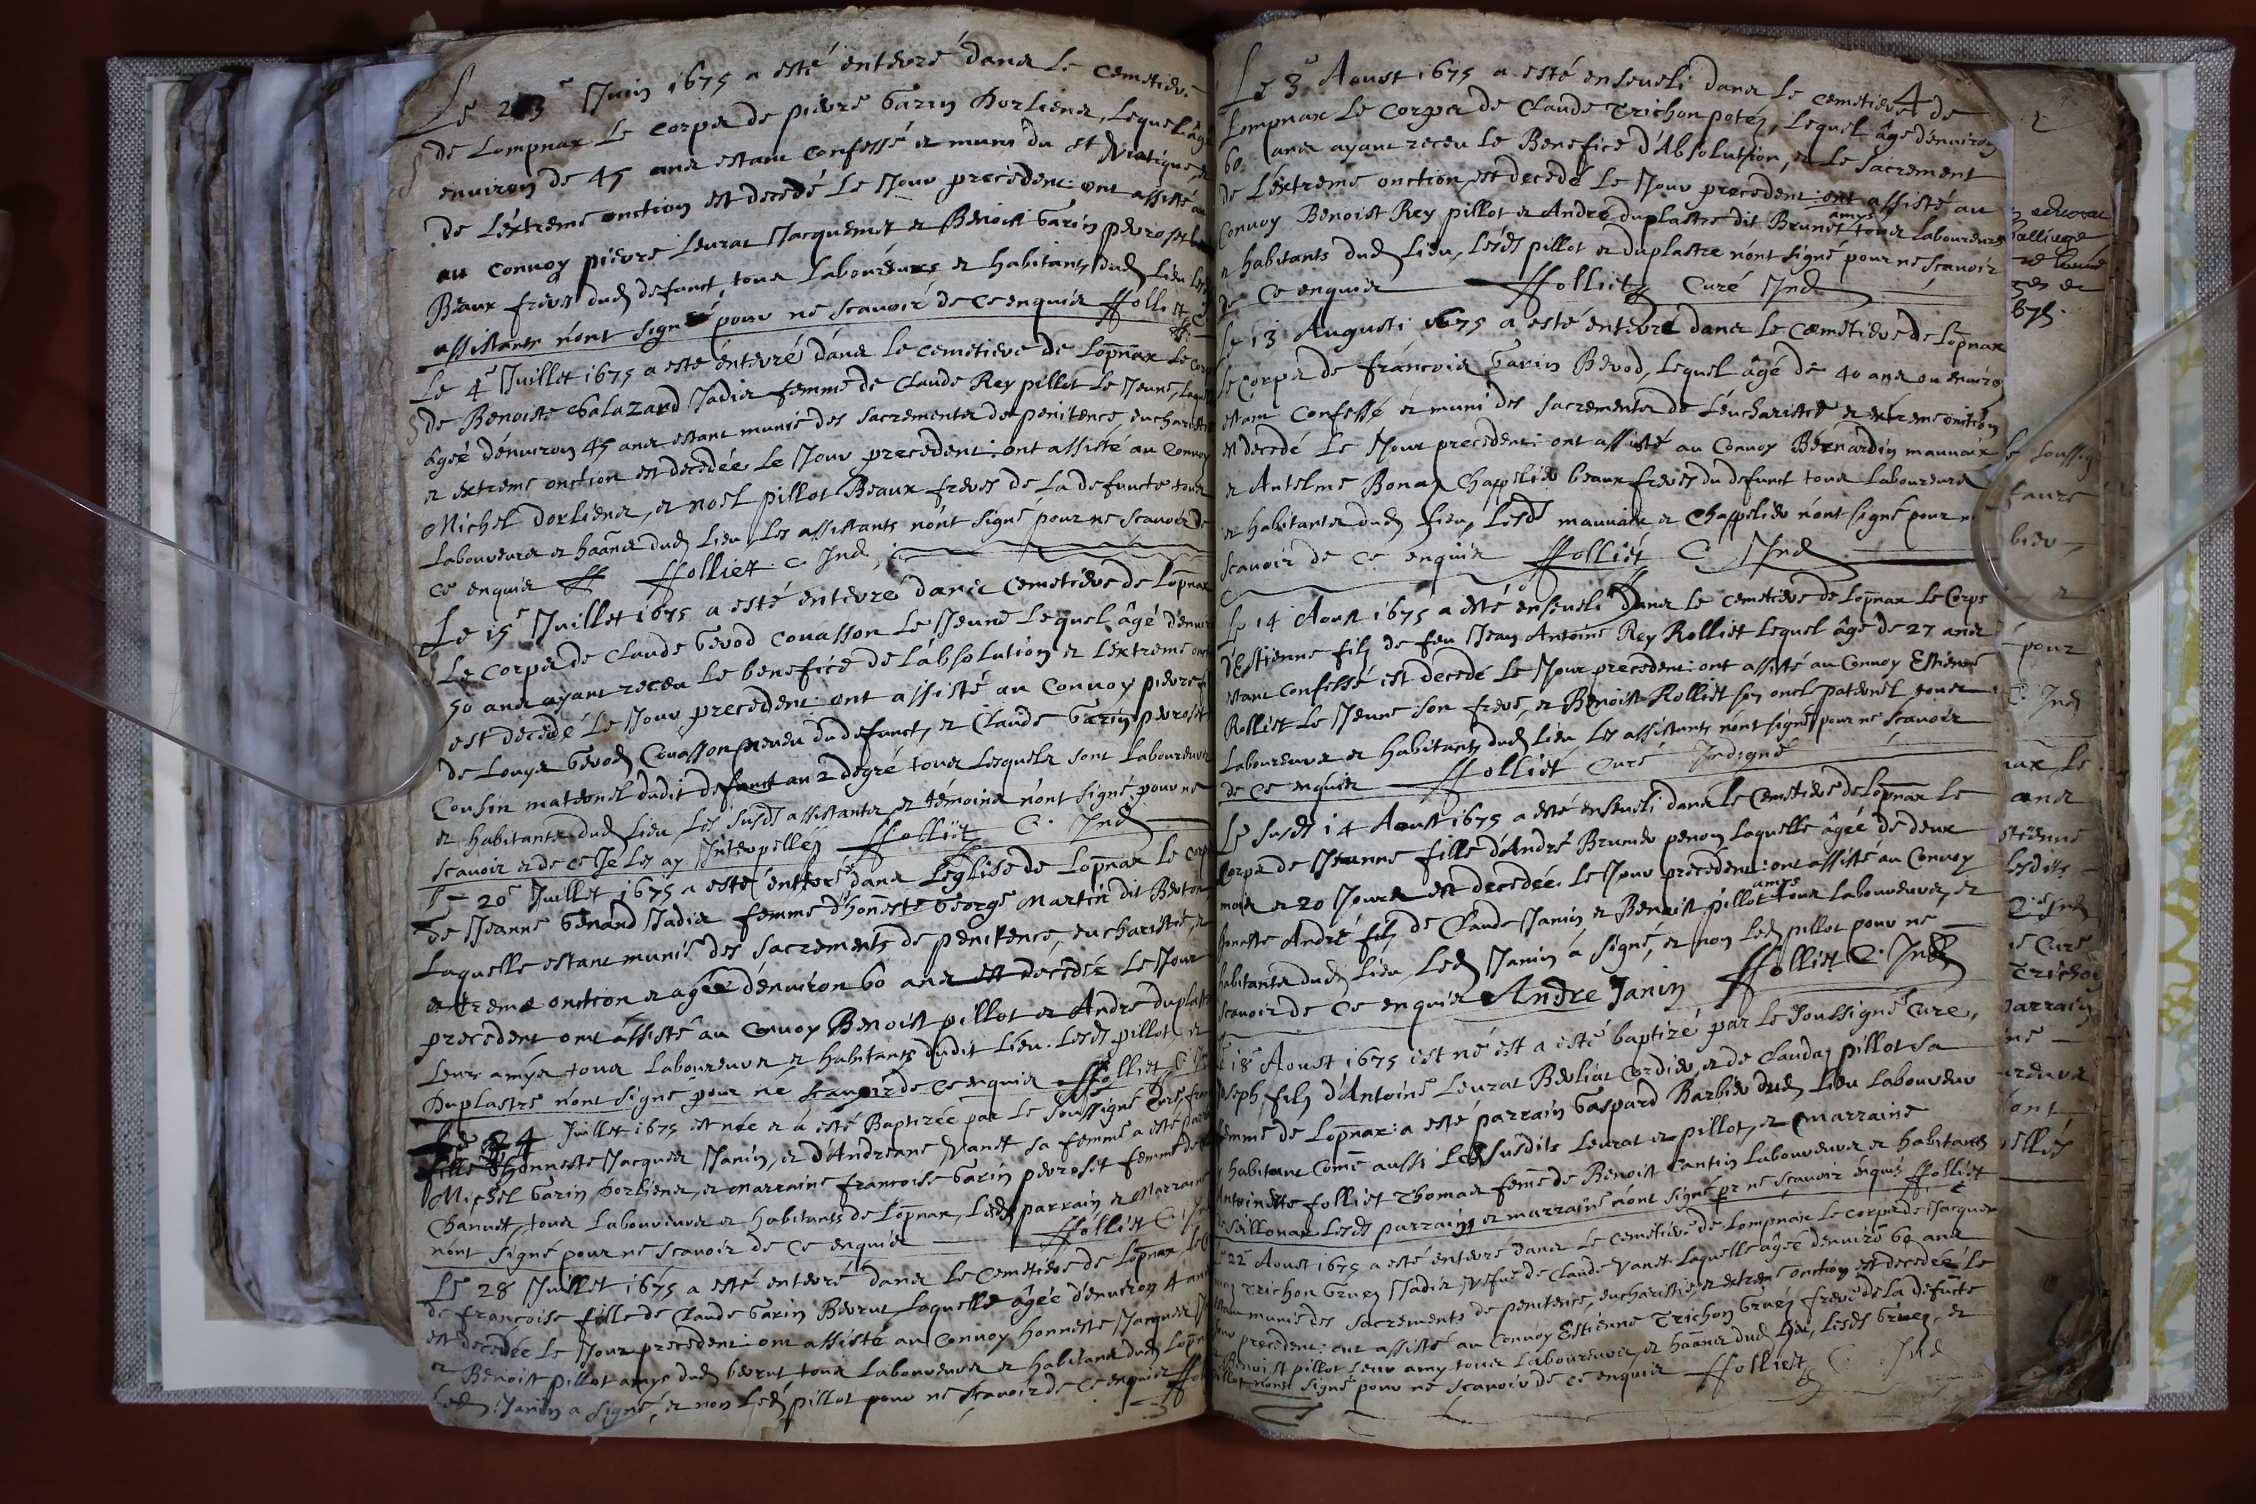 Le 23e Juin 1675 a esté enterré dans le cemetiere
de Lompnax le corps de pierre Garin Dorliens, Lequel âgé
environ de 45 ans estant confessé et muni du st Viatique, et
de L'extreme onction est decedé Le Jour precedent: ont assisté
au Convoy pierre Leurat Jacquemet et Benoist Garin peroset
Beaux freres dud defunct, tous Laboureurs et habitants dud Lieu Les
assistants n'ont signé pour ne scavoir de ce enquis ffolliet C
Le 4e Juillet 1675 a esté enterré dans le cemetiere de Lopnax Le corps
de Benoiste Galazard Jadis femme de Claude Rey pillot Le Jeune, Laquelle
âgée d'environ 45 ans estant munie des sacrements de penitence, eucharistie
et extreme onction est decedée Le Jour precedent: ont assisté au Convoy
Michel dorliens, et noel pillot Beaux freres de La defuncte tous
Laboureurs et haans dud Lieu Les assistants n'ont signé pour ne scavoir de
ce enquis ffolliet C. Ind
Le 15e Juillet 1675 a esté enterré dans le cemetiere de Lopnax
Le corps de Claude Gevod Couasson Le Jeune Lequel âgé d'environ
50 ans ayant receu Le benefice de L'absolution et L'extreme
est decedé Le Jour precedent: ont assisté au Convoy pierre
de Louys Gevod Couasson Neveu du defunct, et Claude Garin peroset
Cousin maternel dudit defunct au 2 degré tous Lesquels sont Laboureurs
et habitants dud Lieu Les susds assistants et témoins n'ont signé pour ne
scavoir et de ce Je Les ay Interpellés ffolliet C. Ind
Le 20e Juillet 1675 a esté enterré dans L'eglise de Lopnax Le corps
de Jeanne Genand Jadis femme d'honneste George Martin dit Berton
Laquelle estant munie des sacrements de penitence, eucharistie, et
extreme onction et agée d'environ 60 ans est decedée Le Jour
precedent ont assisté au Convoy Benoist pillot et André duplastre
Leurs amys tous Laboureurs et habitants dudit Lieu. Lesds pillot, et
Duplastre n'ont signé pour ne scavoir de ce enquis ffolliet C
Le 24 Juillet 1675 est née et a esté Baptizée par Le soussigné Curé
fille d'honneste Jacques Janin, et d'Andreane Vanet sa femme a esté
Michel Garin Dorliens, et marraine francoise Garin peroset femme de
Chanuet, tous Laboureurs et habitants de Lopnax, Lesds parrain et Marraine
n'ont signé pour ne scavoir de ce enquis ffolliet C. Ind
Le 28 Juillet 1675 a esté enterré dans le Cemetiere de Lopnax Le
de francoise fille de Claude Garin Berrut Laquelle âgée d'environ 4 ans
est decedée Le Jour precedent: ont assisté au Convoy honneste Jacques
et Benoist pillot amys dud berrut tous Laboureurs et habitans dud Lopnax
Led Janin a signé, et non Led pillot pour ne scavoir de ce enquis
4
Le 3e Aoust 1675 a esté enseveli dans le cemetiere de
Lompnax Le Corps de Claude Trichon potey, Lequel âgé d'environ
60 ans ayant receu le Benefice d'Absolution, et Le sacrement
de L'extreme onction, est decedé Le Jour precedent: ont assisté au
Convoy Benoist Rey pillot et André duplastre dit Brunet amys tous Laboureurs
et habitants dud Lieu, Lesds pillot et duplastre n'ont signé pour ne scavoir
de Ce enquis ffolliet Curé Ind
Le 13 Augusti 1675 a esté enterré dans Le Cœmetiere de Lopnax
Le Corps de francois Garin Berod, Lequel âgé de 40 ans ou environ
estant Confessé et muni des sacrements de L'eucharistie et extreme onction
est decedé Le Jour precedent: ont assisté au Convoy Bernardin mauvaix
et Antelme Bona Chappelier beaux freres du defunct tous Laboureurs
et habitants dud Lieu, Lesds mauvaix et Chappelier n'ont signé pour ne
scavoir de ce enquis ffolliet C Ind
Le 14 Aoust 1675 a esté enseveli Dans le cemetiere de Lopnax Le Corps
d'Estienne filz de feu Jean Antoine Rey Rolliet Lequel âgé de 27 ans
estant Confessé est décedé Le Jour precedent: ont assisté au Convoy Estienne
Rolliet Le Jeune son frere, et Benoist Rolliet son oncle paternel tous
Laboureurs et habitants dud Lieu Les assistants n'ont signé pour ne scavoir
de ce enquis ffolliet Curé Indigne
Le susds 14 Aoust 1675 a esté enseveli dans le Cemetiere de Lopnax Le
Corps de Jeanne fille d'André Brunier penon Laquelle âgée de deux
mois et 20 Jours est decedée Le Jour precedent: ont assisté au Convoy
honneste André filz de Claude Janin, et Benoist pillot amys tous Laboureurs, et
habitants dud Lieu Led Janin a signé, et non Led pillot pour ne
scavoir de ce enquis Andre Janin ffolliet C. Ind
Le 18e Aoust 1675 est né est a esté baptizé par Le soussigné Curé,
Joseph, filz d'Antoine Leurat Berliat Cordier, et de Clauda pillot sa
femme de Lopnax: a esté parrain Gaspard Barbier dud Lieu Laboureur
y habitant Come aussi Les susdits Leurat et pillot, et marraine
Antoinette folliet Thomas feme de Benoist Cantin Laboureur et habitant
de Seillonax Lesds parrain et marraine n'ont signé pr ne scavoir enquis ffolliet C
Le 22 Aoust 1675 a esté enterré dans le cemetiere de Lompnax Le corps de Jacque
Trichon Gruey Jadis Vefue de Claude Vanet Laquelle âgée d'enviro 60 ans
estant munie des sacrements de penitence, eucharistie, et extreme onction est decedée Le
Jour precedent: ont assisté au Convoy Estienne Trichon Gruey frere de La defuncte
et Benoist pillot Leur amy tous Laboureurs, et haans dud Lieu, Lesds Gruey, et
pillot n'ont signé pour ne scavoir de ce enquis ffolliet C. Ind